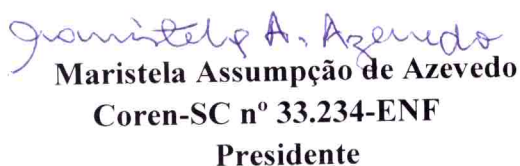 Maristela A. Azevedo
Maristela Assumpção de Azevedo
Coren-SC nº 33.234-ENF
Presidente